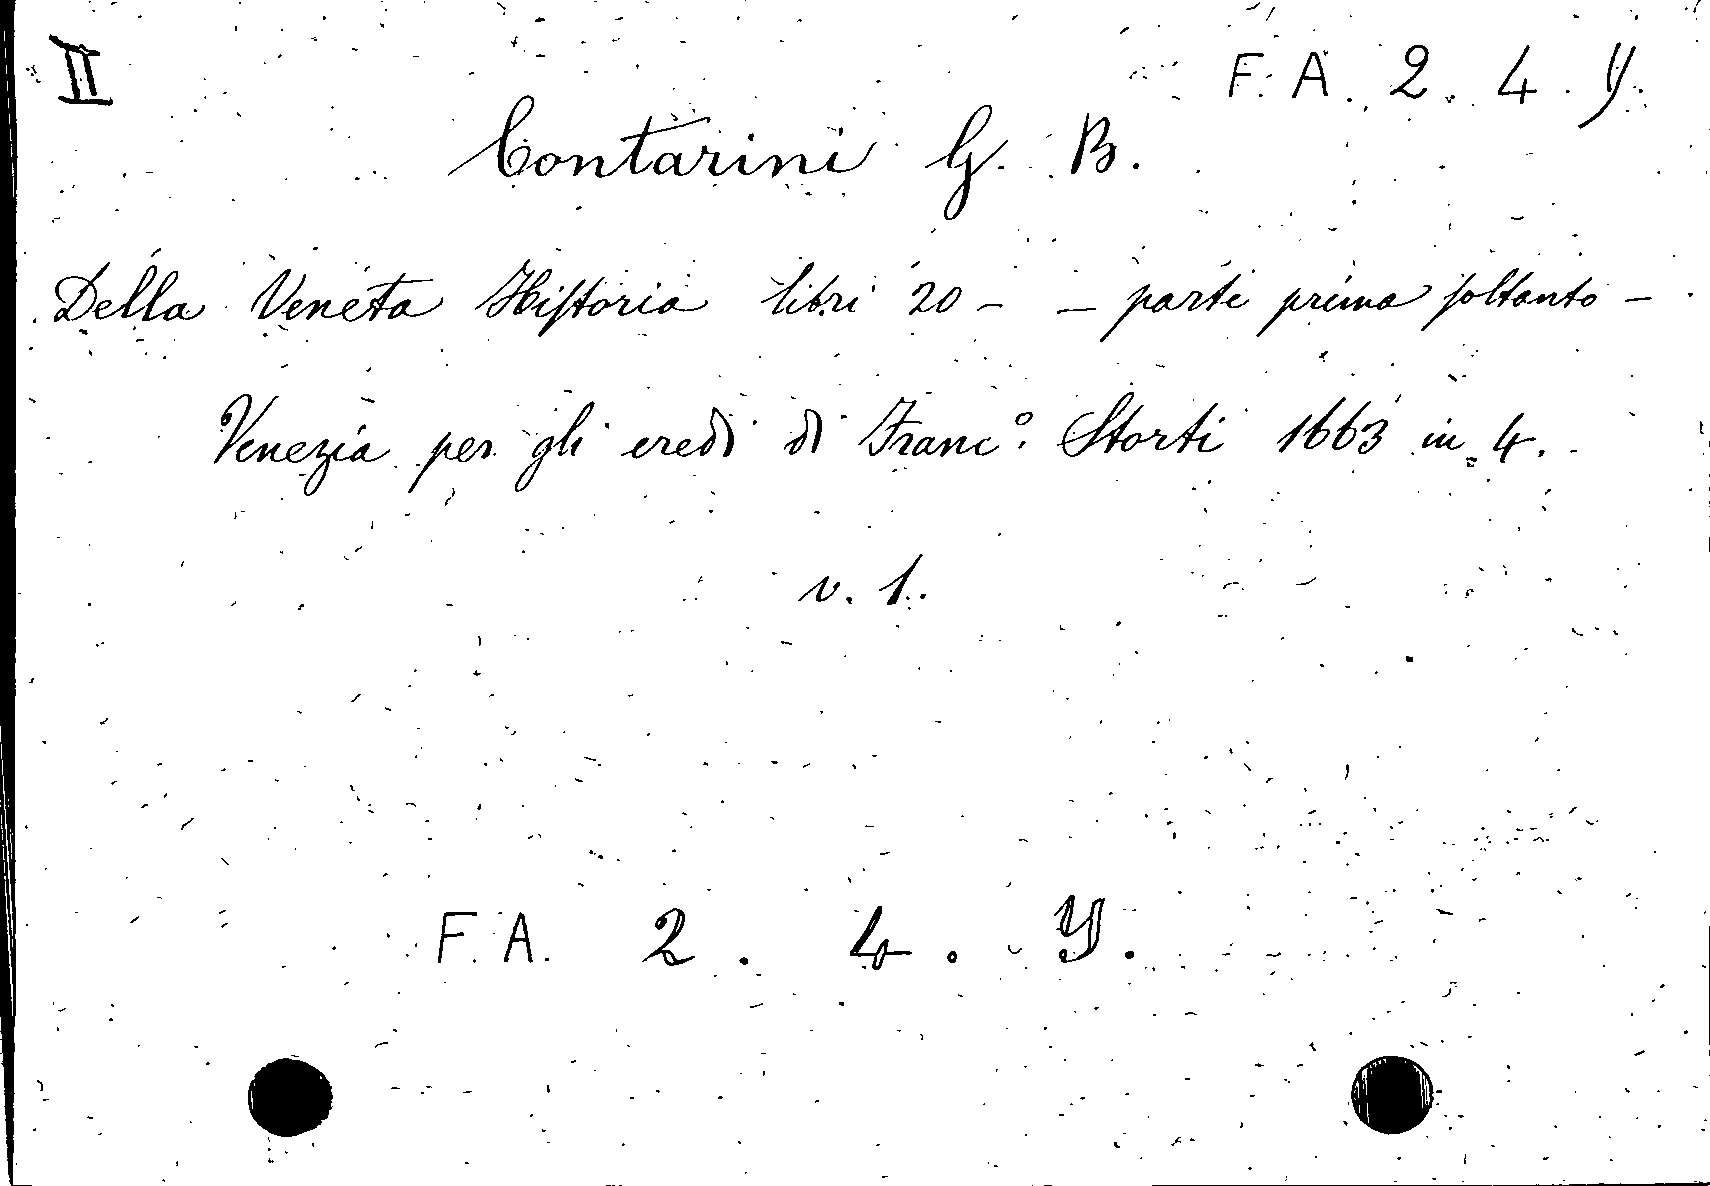 II
F. A. 2. 4. Y.
Contarini G. B.
Della Veneta Hiſtoria libri 20 - - parte prima ſoltanto -
Venezia per gli eredi di Franc.º Storti 1663 in 4.
v. 1.
F. A. 2. 4. Y.